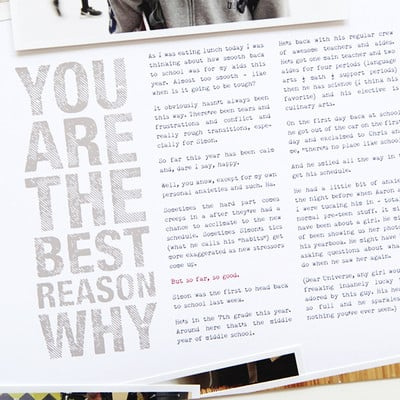 YOU
ARE
THE
BEST
REASON
WHY
As I was eating lunch today I was
thinking about how smooth back
to school was for my kids this
year. Almost too smooth - like
when is it going to be tough?
It obviously hasn't always been
this way. There've been tears and
frustrations and conflict and
really rough transitions, espe-
cially for Simon.
So far this year has been calm
and, dare I say, happy.
Well, you know, except for my own
personal anxieties and such. Ha.
Sometimes the hard part comes
creeps in a after they've had a
chance to acclimate to the new
schedule. Sometimes Simon's tics
(what he calls his "habits") get
more exaggerated as new stressors
come up.
But so far, so good.
Simon was the first to head back
to school last week.
He's in the 7th grade this year.
Around here that's the middle
year of middle school.
He's back with his regular crew
of awesome teachers and aides.
He's got one main teacher and two
aides for four periods (language
arts & math & support periods)
then he has science (I think his
favorite) and his elective is
culinary arts.
On the first day back at school
he got out of the car on the first
day and exclaimed to Chris and
me, "there's no place like school
And he smiled all the way in t
get his schedule.
He had a little bit of anxie
the night before when Aaron a
I were tucking him in - tota
normal pre-teen stuff. It mi
have been about a girl. He mi
of been showing us her photo
his yearbook. He might have
asking questions about what
do when he saw her again.
(Dear Universe, any girl wou
freaking insanely lucky
adored by this guy. His he
so full and he sparkles
nothing you've ever seen.)